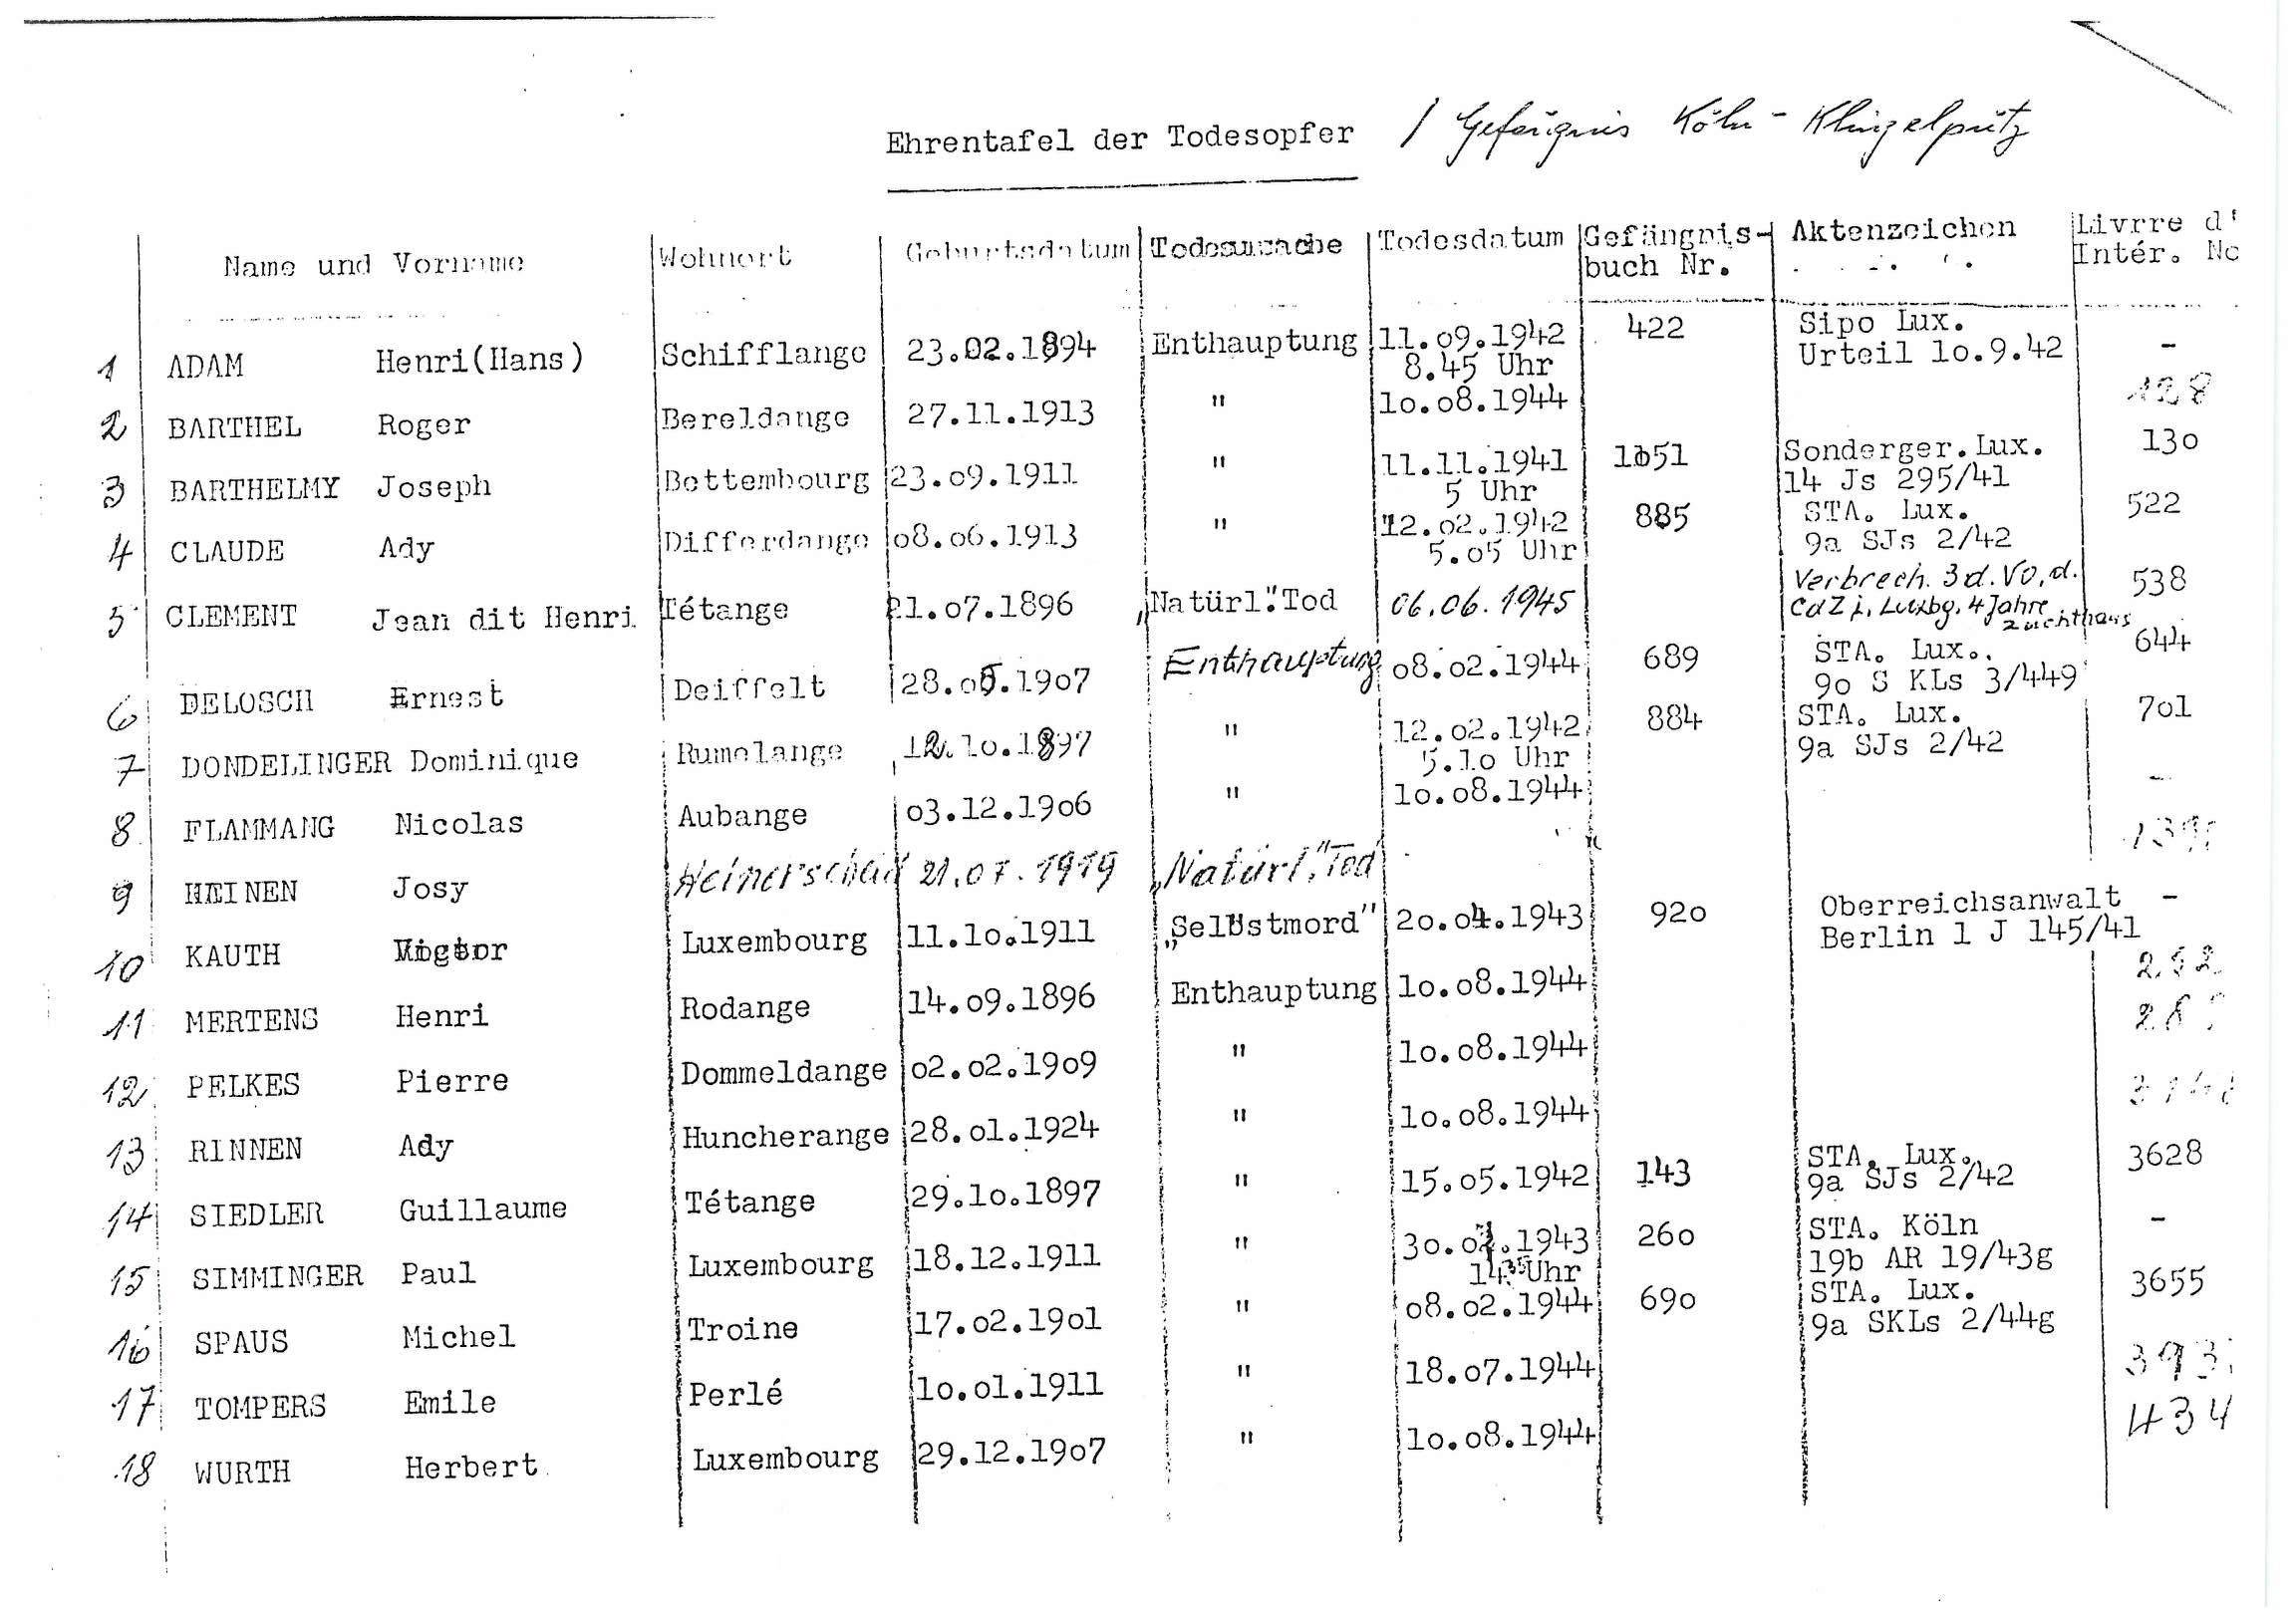 Ehrentafel der Todesopfer / Gefängnis Köln - Klingelpütz
Name und Vorname Wohnort Geburtsdatum Todesursache Todesdatum Gefängnis- Aktenzeichen Livrre d'
buch Nr. Intér. No
1 ADAM Henri(Hans) Schifflange 23.02.1894 Enthauptung 11.09.1942 422 Sipo Lux. -
8.45 Uhr Urteil 10.9.42
2 BARTHEL Roger Bereldange 27.11.1913 " 10.08.1944 128
3 BARTHELMY Joseph Bettembourg 23.09.1911 " 11.11.1941 1051 Sonderger.Lux. 130
5 Uhr 14 Js 295/41
4 CLAUDE Ady Differdange 08.06.1913 " 12.02.1942 885 STA. Lux. 522
5.05 Uhr 9a SJs 2/42
5 CLEMENT Jean dit Henri Tétange 21.07.1896 „Natürl." Tod 06.06.1945 Verbrech. 3 d. VO, d. 538
CdZ i. Luxbg. 4 Jahre
Zuchthaus
6 DELOSCH Ernest Deiffelt 28.05.1907 Enthauptung 08.02.1944 689 STA. Lux.. 644
9o S KLs 3/449
7 DONDELINGER Dominique Rumelange 12.10.1897 " 12.02.1942 884 STA. Lux. 701
5.10 Uhr 9a SJs 2/42
8 FLAMMANG Nicolas Aubange 03.12.1906 " 10.08.1944 -
9 HEINEN Josy 21.07.1919 „Natürl." Tod
10 KAUTH Luxembourg 11.10.1911 „Selbstmord" 20.04.1943 920 Oberreichsanwalt -
Berlin 1 J 145/41
11 MERTENS Henri Rodange 14.09.1896 Enthauptung 10.08.1944
12 PELKES Pierre Dommeldange 02.02.1909 " 10.08.1944
13 RINNEN Ady Huncherange 28.01.1924 " 10.08.1944
14 SIEDLER Guillaume Tétange 29.10.1897 " 15.05.1942 143 STA. Lux. 3628
9a SJs 2/42
15 SIMMINGER Paul Luxembourg 18.12.1911 " 260 STA. Köln -
Uhr 19b AR 19/43g
16 SPAUS Michel Troine 17.02.1901 " 08.02.1944 690 STA. Lux. 3655
9a SKLs 2/44g
17 TOMPERS Emile Perlé 10.01.1911 " 18.07.1944
18 WURTH Herbert Luxembourg 29.12.1907 " 10.08.1944 434